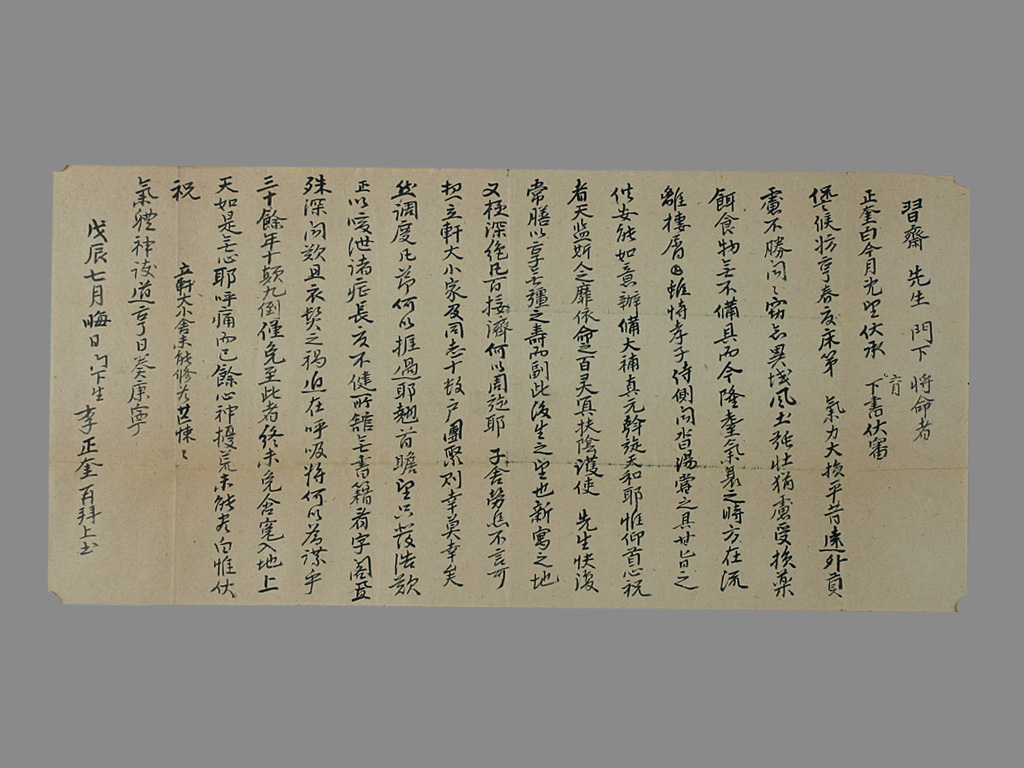 習齋 先生 門下 將命者
正奎白今月光 伏承 六月 下書伏審
候 亨春 度床第 氣力大損平昔遠外貢
慮不勝問〻竊念異域風土 壯猶慮受損藥
餌食物無不備具而今隆 氣暑之時方在流
離棲 雖恃孝子侍側 湯 之具甘旨之
供安能如意辦備大補真元斡旋天和耶惟仰首心祝
者天監斯人之靡依命之百灵冥扶陰護使 先生快復
常膳以享無疆之壽而副此後生之望也新寓之地
又極深絶凡百接濟何以周旋耶 子舍勞焦不言可
想立軒大小家及同志十故戸團聚則幸莫幸矣
然調度凡節何以推過耶翹首瞻望只 浩歎
正以咳泄諸症長夏不健所 無書籍看字閣
殊深悶歎且衣髮之禍迫在呼吸將何以為謀乎
三十餘年十顚九倒僅免至此者終未免含寃入地上
天如是無心耶呼痛而已餘心神擾荒未能 白惟伏
祝 立軒大小舍未能修 悚〻
氣體神護道亨日 康寧
戊辰七月晦日 門下生 李正奎 百拜上書